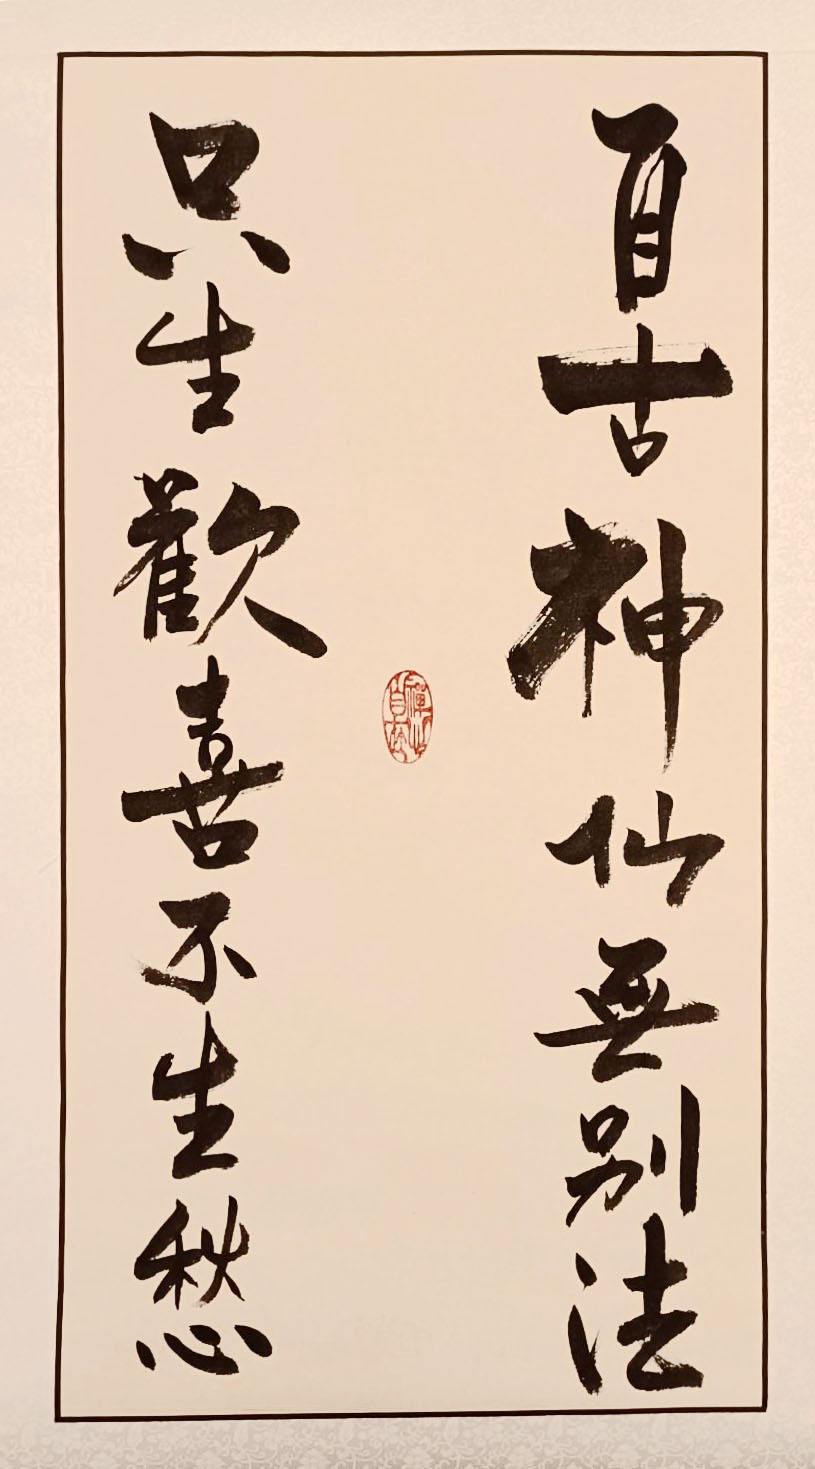 自古神仙無別法
只生歡喜不生愁